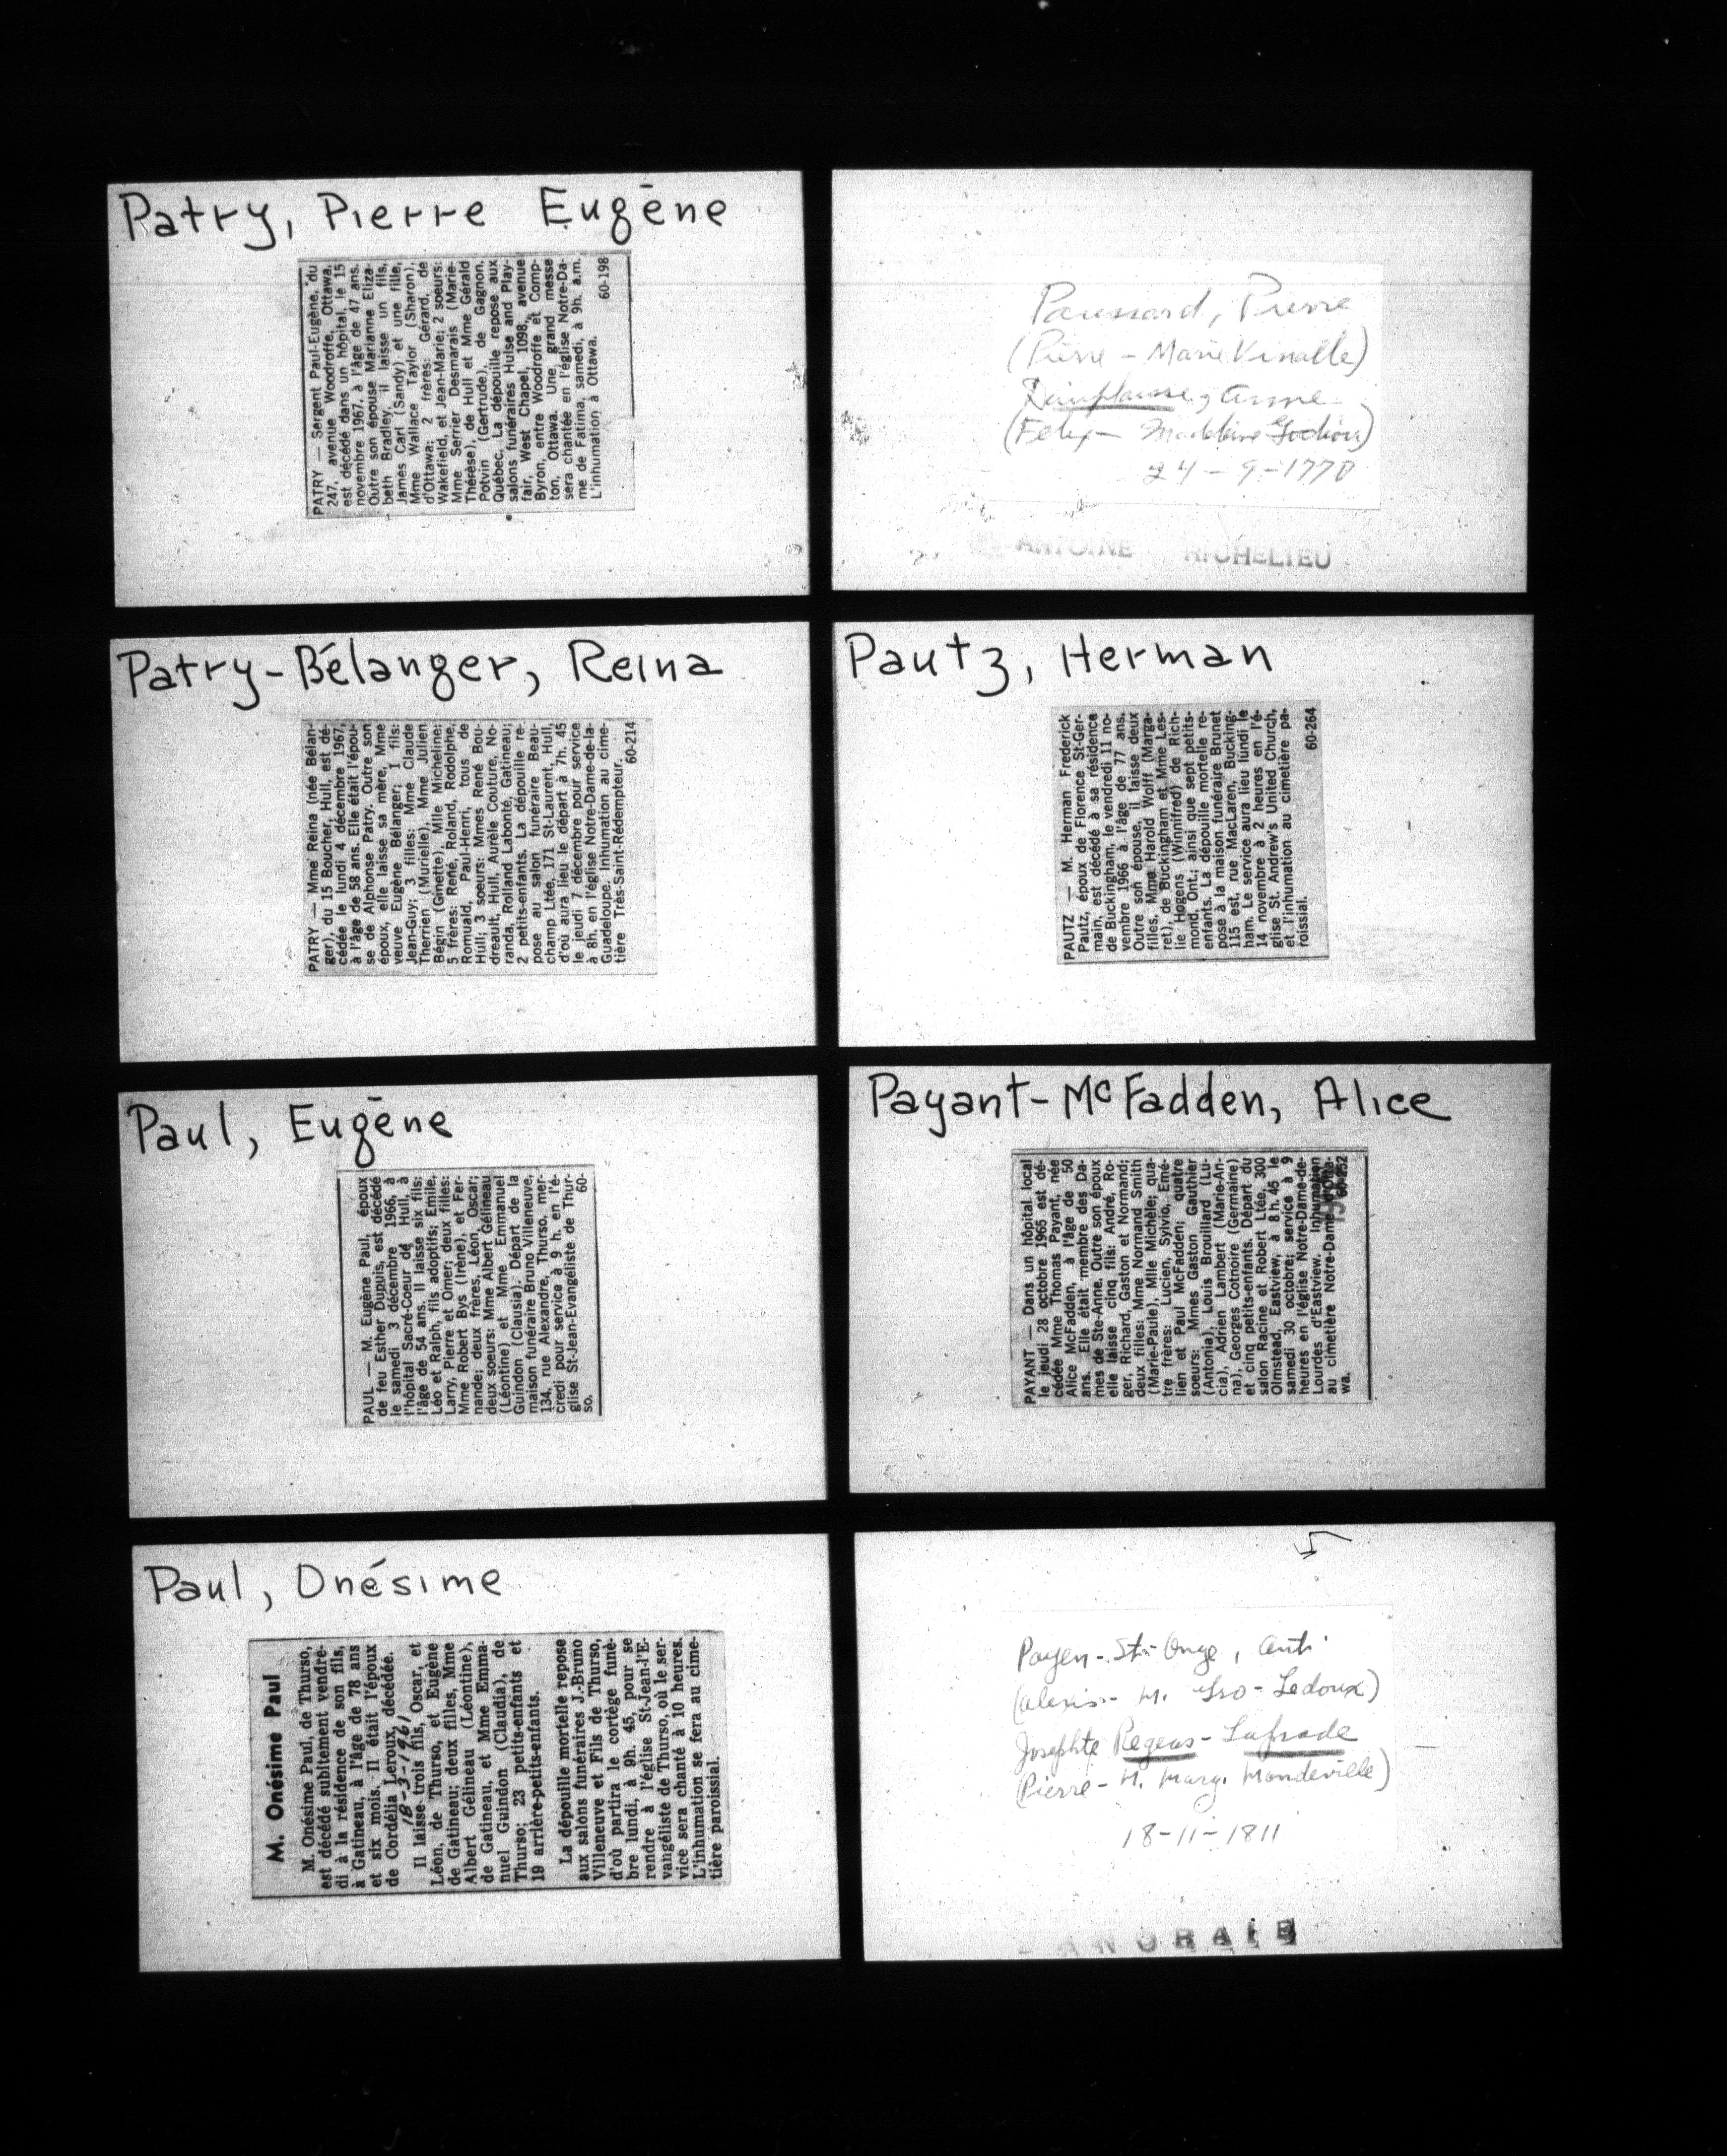 Patry, Pierre Eugène
PATRY — Sergent Paul-Eugène, du
247, avenue Woodroffe, Ottawa,
est décédé dans un hôpital, le 15
novembre 1967, à l'âge de 47 ans.
Outre son épouse Marianne Eliza-
beth Bradley, il laisse un fils,
James Carl (Sandy) et une fille,
Mme Wallace Taylor (Sharon),
d'Ottawa; 2 frères: Gérard, de
Wakefield, et Jean-Marie; 2 soeurs:
Mme Serrier Desmarais (Marie-
Thérèse), de Hull et Mme Gérald
Potvin (Gertrude), de Gagnon,
Québec. La dépouille repose aux
salons funéraires Hulse and Play-
fair, West Chapel, 1098, avenue
Byron, entre Woodroffe et Comp-
ton, Ottawa. Une grand messe
sera chantée en l'église Notre-Da-
me de Fatima, samedi, à 9h. a.m.
L'inhumation à Ottawa.
60-198
Patry-Bélanger, Reina
PATRY — Mme Reina (née Bélan-
ger), du 15 Boucher, Hull, est dé-
cédée le lundi 4 décembre 1967,
à l'âge de 58 ans. Elle était l'épou-
se de Alphonse Patry. Outre son
époux, elle laisse sa mère, Mme
veuve Eugène Bélanger; 1 fils:
Jean-Guy; 3 filles: Mme Claude
Therrien (Murielle), Mme Julien
Bégin (Ginette), Mlle Micheline;
5 frères: René, Roland, Rodolphe,
Romuald, Paul-Henri, tous de
Hull; 3 soeurs: Mmes René Bou-
dreault, Hull, Aurèle Couture, No-
randa, Rolland Labonté, Gatineau;
2 petits-enfants. La dépouille re-
pose au salon funéraire Beau-
champ Ltée, 171 St-Laurent, Hull,
d'où aura lieu le départ à 7h. 45
le jeudi 7 décembre pour service
à 8h. en l'église Notre-Dame-de-la-
Guadeloupe. Inhumation au cime-
tière Très-Saint-Rédempteur.
60-214
Paul, Eugène
PAUL — M. Eugène Paul, époux
de feu Esther Dupuis, est décédé
le samedi 3 décembre 1966, à
l'hôpital Sacré-Coeur de Hull, à
l'âge de 54 ans. Il laisse six fils:
Léo et Ralph, fils adoptifs; Emile,
Larry, Pierre et Omer; deux filles:
Mme Robert Bys (Irène), et Fer-
nande; deux frères, Léon, Oscar;
deux soeurs: Mme Albert Gélineau
(Léontine) et Mme Emmanuel
Guindon (Clausia). Départ de la
maison funéraire Bruno Villeneuve,
134, rue Alexandre, Thurso, mer-
credi pour service à 9 h. en l'é-
glise St-Jean-Evangéliste de Thur-
so.
60-
Paul, Onésime
M. Onésime Paul
M. Onésime Paul, de Thurso,
est décédé subitement vendre-
di à la résidence de son fils,
à Gatineau, à l'âge de 78 ans
et six mois. Il était l'époux
de Cordélia Leroux, décédée.
18-3-1961
Il laisse trois fils, Oscar, et
Léon, de Thurso, et Eugène
de Gatineau; deux filles, Mme
Albert Gélineau (Léontine),
de Gatineau, et Mme Emma-
nuel Guindon (Claudia), de
Thurso; 23 petits-enfants et
19 arrière-petits-enfants.
La dépouille mortelle repose
aux salons funéraires J.-Bruno
Villeneuve et Fils de Thurso,
d'où partira le cortège funè-
bre lundi, à 9h. 45, pour se
rendre à l'église St-Jean-l'E-
vangéliste de Thurso, où le ser-
vice sera chanté à 10 heures.
L'inhumation se fera au cime-
tière paroissial.
Pierre
(Pierre - Marie
(Felix -
24-9-1770
ANTOINE RICHELIEU
Pautz, Herman
PAUTZ — M. Herman Frederick
Pautz, époux de Florence St-Ger-
main, est décédé à sa résidence
de Buckingham, le vendredi 11 no-
vembre 1966 à l'âge de 77 ans.
Outre son épouse, il laisse deux
filles, Mme Harold Wolff (Marga-
ret), de Buckingham et Mme Les-
lie Hogens (Winnifred) de Rich-
mond, Ont.; ainsi que sept petits-
enfants. La dépouille mortelle re-
pose à la maison funéraire Brunet
115 est, rue MacLaren, Bucking-
ham. Le service aura lieu lundi le
14 novembre à 2 heures en l'é-
glise St. Andrew's United Church,
et l'inhumation au cimetière pa-
roissial.
60-264
Payant-McFadden, Alice
PAYANT — Dans un hôpital local
le jeudi 28 octobre 1965 est dé-
cédée Mme Thomas Payant, née
Alice McFadden, à l'âge de 50
ans. Elle était membre des Da-
mes de Ste-Anne. Outre son époux
elle laisse cinq fils: André, Ro-
ger, Richard, Gaston et Normand;
deux filles: Mme Normand Smith
(Marie-Paule), Mlle Michèle; qua-
tre frères: Lucien, Sylvio, Emé-
lien et Paul McFadden; quatre
soeurs: Mmes Gaston Gauthier
(Antonia), Louis Brouillard (Lu-
cia), Adrien Lambert (Marie-An-
na), Georges Cotnoire (Germaine)
et cinq petits-enfants. Départ du
salon Racine et Robert Ltée, 300
Olmstead, Eastview, à 8 h. 45 le
samedi 30 octobre; service à 9
heures en l'église Notre-Dame-de-
Lourdes d'Eastview. Inhumation
au cimetière Notre-Dame
wa.
Payen-St-Onge, Ant.
(Alexis - M. Ledoux)
Josephte Regeas-Lafrade
(Pierre - M. Marg. Mandeville)
18-11-1811